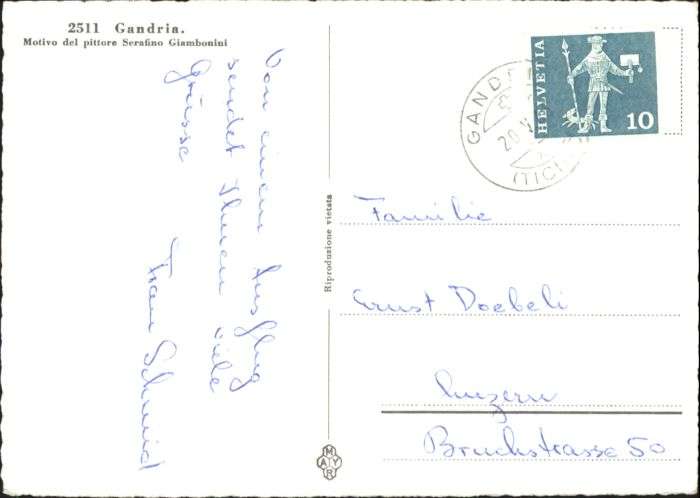 2511 Gandria.
Motivo del pittore Serafino Giambonini
Von einem Ausflug
sendet Ihnen viele
Grüsse
Frau Schmid
Riproduzione vietata
MAYR
HELVETIA
10
GAND
20
(TICI
Familie
Ernst Doebeli
Luzern
Bruchstrasse 50